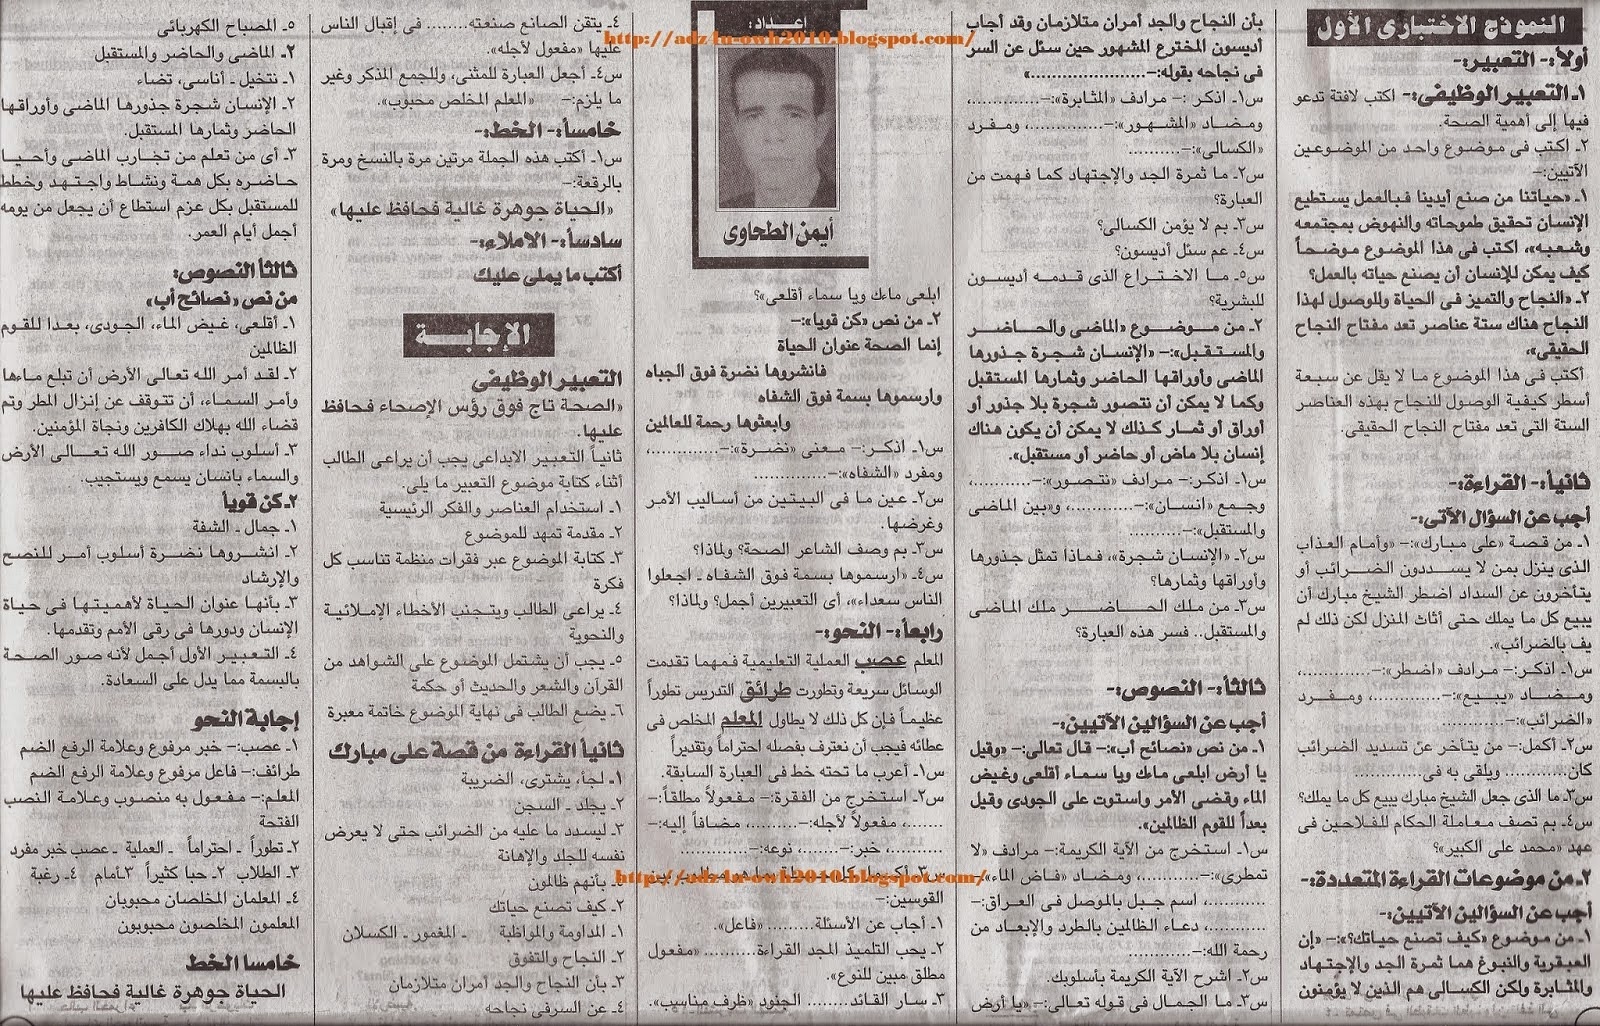 النموذج الاختبارى الأول
أولاً:- التعبير:-
١ـ التعبير الوظيفى:- اكتب لافتة تدعو
فيها إلى أهمية الصحة.
٢ـ اكتب فى موضوع واحد من الموضوعين
الآتيين:-
١ـ «حياتنا من صنع أيدينا فبالعمل يستطيع
الإنسان تحقيق طموحاته والنهوض بمجتمعه
وشعبه»، اكتب فى هذا الموضوع موضحاً
كيف يمكن للإنسان أن يصنع حياته بالعمل؟
٢ـ «النجاح والتميز فى الحياة وللوصول لهذا
النجاح هناك ستة عناصر تعد مفتاح النجاح
الحقيقى»،
أكتب فى هذا الموضوع ما لا يقل عن سبعة
أسطر كيفية الوصول للنجاح بهذه العناصر
الستة التى تعد مفتاح النجاح الحقيقى.
ثانياً:- القراءة:-
أجب عن السؤال الآتى:-
١ـ من قصة «على مبارك»:- «وأمام العذاب
الذى ينزل بمن لا يسددون الضرائب أو
يتأخرون عن السداد اضطر الشيخ مبارك أن
يبيع كل ما يملك حتى أثاث المنزل لكن ذلك لم
يف بالضرائب».
س١ـ اذكر:- مرادف «اضطر»:-............،
ومضاد «يبيع»:-............، ومفرد
«الضرائب»:-............
س٢ـ أكمل:- من يتأخر عن تسديد الضرائب
كان............ ويلقى به فى............
س٣ـ ما الذى جعل الشيخ مبارك يبيع كل ما يملك؟
س٤ـ بم تصف معاملة الحكام للفلاحين فى
عهد «محمد على الكبير»؟
٢ـ من موضوعات القراءة المتعددة:-
أجب عن السؤالين الآتيين:-
١ـ من موضوع «كيف تصنع حياتك؟»:- «إن
العبقرية والنبوغ هما ثمرة الجد والإجتهاد
والمثابرة ولكن الكسالى هم الذين لا يؤمنون
بأن النجاح والجد أمران متلازمان وقد أجاب
أديسون المخترع المشهور حين سئل عن السر
فى نجاحه بقوله:-....................»
س١ـ اذكر :- مرادف «المثابرة»:-............،
ومضاد «المشهور»:-............، ومفرد
«الكسالى»:-............
س٢ـ ما ثمرة الجد والإجتهاد كما فهمت من
العبارة؟
س٣ـ بم لا يؤمن الكسالى؟
س٤ـ عم سئل أديسون؟
س٥ـ ما الاختراع الذى قدمه أديسون
للبشرية؟
٢ـ من موضوع «الماضى والحاضر
والمستقبل»:- «الإنسان شجرة جذورها
الماضى وأوراقها الحاضر وثمارها المستقبل
وكما لا يمكن أن نتصور شجرة بلا جذور أو
أوراق أو ثمار كذلك لا يمكن أن يكون هناك
إنسان بلا ماض أو حاضر أو مستقبل».
س١ـ اذكر:- مرادف «نتصور»:-............،
وجمع «انسان»:-............، و«بين الماضى
والمستقبل»:-............
س٢ـ «الإنسان شجرة»، فماذا تمثل جذورها
وأوراقها وثمارها؟
س٣ـ من ملك الحاضر ملك الماضى
والمستقبل.. فسر هذه العبارة؟
ثالثاً:- النصوص:-
أجب عن السؤالين الآتيين:-
١ـ من نص «نصائح أب»:- قال تعالى:- «وقيل
يا أرض ابلعى ماءك ويا سماء أقلعى وغيض
الماء وقضى الأمر واستوت على الجودى وقيل
بعداً للقوم الظالمين».
س١ـ استخرج من الآية الكريمة:- مرادف «لا
تمطرى»:-............، ومضاد «فاض الماء»:-
............، اسم جبل بالموصل فى العراق:-
............، دعاء الظالمين بالطرد والإبعاد من
رحمة الله:-............
س٢ـ اشرح الآية الكريمة بأسلوبك.
س٣ـ ما الجمال فى قوله تعالى:- «يا أرض
إعداد:
أيمن الطحاوى
ابلعى ماءك ويا سماء أقلعى»؟
٢ـ من نص «كن قويا»:-
إنما الصحة عنوان الحياة
فانشروها نضرة فوق الجباه
وارسموها بسمة فوق الشفاه
وابعثوها رحمة للعالمين
س١ـ اذكر:- معنى «نضرة»:-............،
ومفرد «الشفاه»:-............
س٢ـ عين ما فى البيتين من أساليب الأمر
وغرضها.
س٣ـ بم وصف الشاعر الصحة؟ ولماذا؟
س٤ـ «ارسموها بسمة فوق الشفاه ـ اجعلوا
الناس سعداء»، أى التعبيرين أجمل؟ ولماذا؟
رابعاً:- النحو:-
المعلم عصب العملية التعليمية فمهما تقدمت
الوسائل سريعة وتطورت طرائق التدريس تطوراً
عظيماً فإن كل ذلك لا يطاول المعلم المخلص فى
عطائه فيجب أن نعترف بفضله احتراماً وتقديراً
س١ـ أعرب ما تحته خط فى العبارة السابقة.
س٢ـ استخرج من الفقرة:- مفعولاً مطلقاً:-
.......، مفعولاً لأجله:-.........، مضافاً إليه:-
............، خبر:-.........، نوعه:-............
القوسين:-
١ـ أجاب عن الأسئلة......... «فاعل».
٢ـ يجب التلميذ المجد القراءة......... «مفعول
مطلق مبين للنوع».
٣ـ سار القائد......... الجنود «ظرف مناسب».
٤ـ يتقن الصانع صنعته......... فى إقبال الناس
عليها «مفعول لأجله».
س٤ـ أجعل العبارة للمثنى، وللجمع المذكر وغير
ما يلزم:- «المعلم المخلص محبوب».
خامساً:- الخط:-
س١ـ أكتب هذه الجملة مرتين مرة بالنسخ ومرة
بالرقعة:-
«الحياة جوهرة غالية فحافظ عليها»
سادساً:- الاملاء:-
أكتب ما يملى عليك
الإجابة
التعبير الوظيفى
«الصحة تاج فوق رؤس الإصحاء فحافظ
عليها.
ثانياً التعبير الابداعى يجب أن يراعى الطالب
أثناء كتابة موضوع التعبير ما يلى.
١ـ استخدام العناصر والفكر الرئيسية
٢ـ مقدمة تمهد للموضوع
٣ـ كتابة الموضوع عبر فقرات منظمة تناسب كل
فكرة
٤ـ يراعى الطالب ويتجنب الأخطاء الإملائية
والنحوية
٥ـ يجب أن يشتمل الموضوع على الشواهد من
القرآن والشعر والحديث أو حكمة
٦ـ يضع الطالب فى نهاية الموضوع خاتمة معبرة
ثانياً القراءة من قصة على مبارك
١ـ لجأ، يشترى، الضريبة
٢ـ يجلد ـ السجن
٣ـ ليسدد ما عليه من الضرائب حتى لا يعرض
نفسه للجلد والإهانة
٤ـ بأنهم ظالمون
٢ـ كيف تصنع حياتك
١ـ المداومة والمواظبة ـ المغمور ـ الكسلان
٢ـ النجاح والتفوق
٣ـ بأن النجاح والجد أمران متلازمان
٤ـ عن السر فى نجاحه
٥ـ المصباح الكهربائى
٢ـ الماضى والحاضر والمستقبل
١ـ نتخيل ـ أناسى، تضاد
٢ـ الإنسان شجرة جذورها الماضى وأوراقها
الحاضر وثمارها المستقبل.
٣ـ أى من تعلم من تجارب الماضى وأحيا
حاضره بكل همة ونشاط واجتهد وخطط
للمستقبل بكل عزم استطاع أن يجعل من يومه
أجمل أيام العمر.
ثالثاً النصوص:
من نص «نصائح أب»
١ـ أقلعى، غيض الماء، الجودى، بعدا للقوم
الظالمين
٢ـ لقد أمر الله تعالى الأرض أن تبلع ماءها
وأمر السماء، أن تتوقف عن إنزال المطر وتم
قضاء الله بهلاك الكافرين ونجاة المؤمنين.
٣ـ أسلوب نداء صور الله تعالى الأرض
والسماء بانسان يسمع ويستجيب.
٢ـ كن قوياً
١ـ جمال ـ الشفة
٢ـ انشروها نضرة أسلوب أمر للنصح
والإرشاد
٣ـ بأنها عنوان الحياة لأهميتها فى حياة
الإنسان ودورها فى رقى الأمم وتقدمها.
٤ـ التعبير الأول أجمل لأنه صور الصحة
بالبسمة مما يدل على السعادة.
إجابة النحو
١ـ عصب:- خبر مرفوع وعلامة الرفع الضم
طرائف:- فاعل مرفوع وعلامة الرفع الضم
المعلم:- مفعول به منصوب وعلامة النصب
الفتحة
٢ـ تطوراً ـ احتراماً ـ العملية ـ عصب خبر مفرد
٣ـ الطلاب ٢ـ حبا كثيراً ٣ـ أمام ٤ـ رغبة
٤ـ المعلمان المخلصان محبوبان
المعلمون المخلصون محبوبون
خامسا الخط
الحياة جوهرة غالية فحافظ عليها
http://adz-lu-owh2010.blogspot.com/
http://adz-lu-owh2010.blogspot.com/